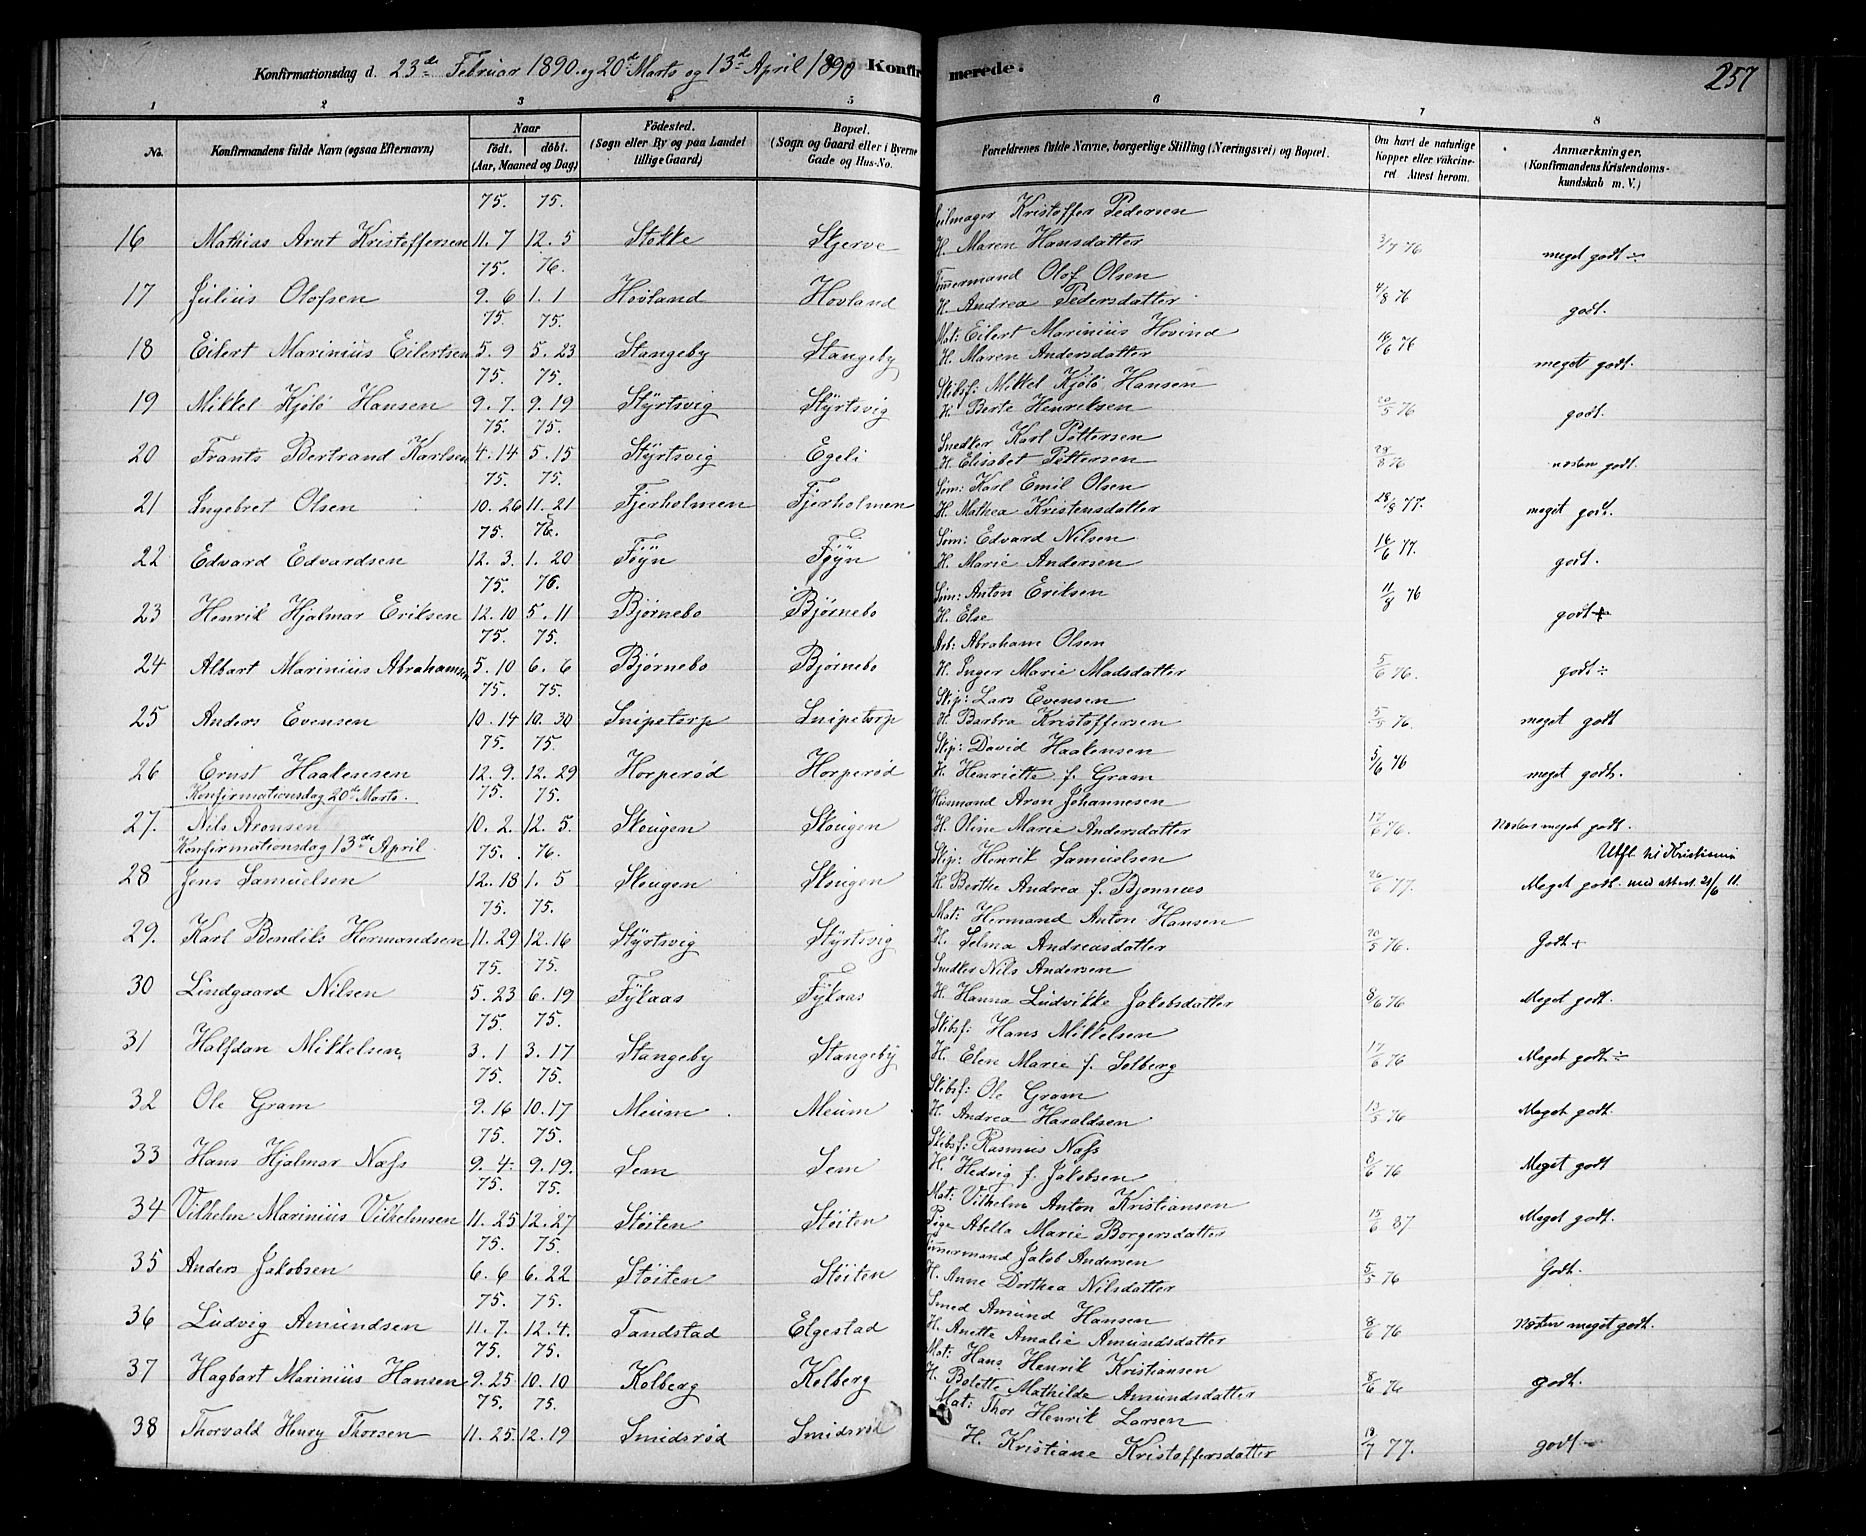 Konfirmationsdag d. 23de Februar 1890 og 20de Marts og 13de April 1890 Konfirmerede. 257
1 2 3 4 5 6 7 8
No. Konfirmandens fulde Navn (ogsaa Efternavn) Naar født. døbt. (Aar, Maaned og Dag) Fødested. (Sogn eller By og paa Landet tillige Gaard) Bopæl. (Sogn og Gaard eller i Byerne Gade og Hus-No. Forældrenes fulde Navne, borgerlige Stilling (Næringsvei) og Bopæl. Om havt de naturlige Kopper eller vakcineret Attest herom. Anmærkninger, (Konfirmandens Kristendomskundskab m. V.)
75. 75. Seilmager Kristoffer Pedersen
16 Mathias Arnt Kristoffersen 11. 7 12. 5 Stokke Skjerve H. Maren Hansdatter 3/7 76 meget godt ÷
75. 76. Tømmermand Olof Olsen
17 Julius Olofsen 9. 6 1. 1 Hovland Hovland H. Andrea Pedersdatter 4/8 76 godt.
75. 75. Mat: Eilert Marinius Hovind
18 Eilert Marinius Eilertsen 5. 9 5. 23 Stangeby Stangeby H. Maren Andersdatter 16/6 76 meget godt.
75. 75. Skibsf: Mikkel Kjølø Hansen
19 Mikkel Kjølø Hansen 9. 7. 9. 19 Styrtsvig Styrtsvig H. Berte Henriksen 20/5 76 godt.
75. 75. Snedker Karl Pettersen
20 Frants Bertrand Karlsen 4. 14 5. 15 Styrtsvig Egeli H. Elisabet Pettersen 28/8 76 næsten godt.
75. 75. Søm: Karl Emil Olsen
21 Ingebret Olsen 10. 26 11. 21 Fjerholmen Fjerholmen H. Mathea Kristensdatter 28/8 77. meget godt.
75. 76. Søm: Edvard Nilsen
22 Edvard Edvardsen 12. 3. 1. 20 Føyn Føyn H. Marie Andersen 16/6 77. godt.
75. 76. Søm: Anton Eriksen
23 Henrik Hjalmar Eriksen 12. 10 5. 11 Bjørnebo Bjørnebo H. Else 11/8 76 godt +
75. 75. Arb: Abraham Olsen
24 Albart Marinius Abrahamsen 5. 10 6. 6 Bjørnebo Bjørnebo H. Inger Marie Madsdatter 5/6 76. godt ÷
75. 75. Skip: Lars Evensen
25 Anders Evensen 10. 14 10. 30 Snipetorp Snipetorp H. Barbra Kristoffersen 5/5 76. meget godt
75. 75. Skip: David Haakensen
26 Ernst Haakensen 12. 9. 12. 29 Horperød Horperød H. Henriette f. Gram 5/6 76 meget godt.
Konfirmationsdag 20de Marts. 75. 75. Husmand Aron Johannesen
27. Nils Aronsen 10. 2. 12. 5. Skougen Skougen H. Oline Marie Andersdatter 17/6 76. Næsten meget godt.
Konfirmationsdag 13de April. 75. 76. Skip: Henrik Samuelsen Utfl. til Kristiania
28 Jens Samuelsen 12. 18 1. 5 Skougen Skougen H. Berthe Andrea f. Bjønnæs 26/6 77. Meget godt. med attest. 21/6 11.
75. 75. Mat: Hermand Anton Hansen
29. Karl Bendiks Hermandsen 11. 29 12. 16 Styrtsvig Styrtsvig H. Selma Andreasdatter 20/5 76. Godt +
75. 75. Snedker Nils Andersen
30 Lindgaard Nilsen 5. 23 6. 19 Fykaas Fykaas H. Hanna Ludvikke Jakobsdatter 8/6 76 Meget godt.
75. 75. Skibsf: Hans Mikkelsen
31 Halfdan Mikkelsen 3. 1 3. 17 Stangeby Stangeby H. Elen Marie f. Solberg 17/6 76 Meget godt ÷
75. 75. Skibsf: Ole Gram
32 Ole Gram 9. 16 10. 17 Meum Meum H. Andrea Haraldsen 13/5 76 Meget godt.
75. 75. Skibsf: Rasmus Næss
33 Hans Hjalmar Næss 9. 4. 9. 19. Sem Sem H. Hedvig f. Jakobsen 8/6 76 Meget godt
75. 75. Mat: Vilhelm Anton Kristiansen
34 Vilhelm Marinius Vilhelmsen 11. 25 12. 27 Støiten Støiten Pige Abella Marie Borgersdatter 15/6 87 Meget godt.
75. 75. Tømmermand Jakob Andersen
35 Anders Jakobsen 6. 6 6. 22 Støiten Støiten H. Anne Dorthea Nilsdatter 5/5 76 Godt.
75. 75. Smed Amund Hansen
36 Ludvig Amundsen 11. 7. 12. 4. Tandstad Elgestad H. Anette Amalie Amundsdatter 8/6 76 Næsten meget godt.
75. 75. Mat: Hans Henrik Kristiansen
37 Hagbart Marinius Hansen 9. 25 10. 10 Kolberg Kolberg H. Bolette Mathilde Amundsdatter 8/6 76 godt.
75. 75. Mat: Thor Henrik Larsen
38 Thorvald Henry Thorsen 11. 25. 12. 19 Smidsrød Smidsrød H. Kristiane Kristoffersdatter 19/7 77. godt